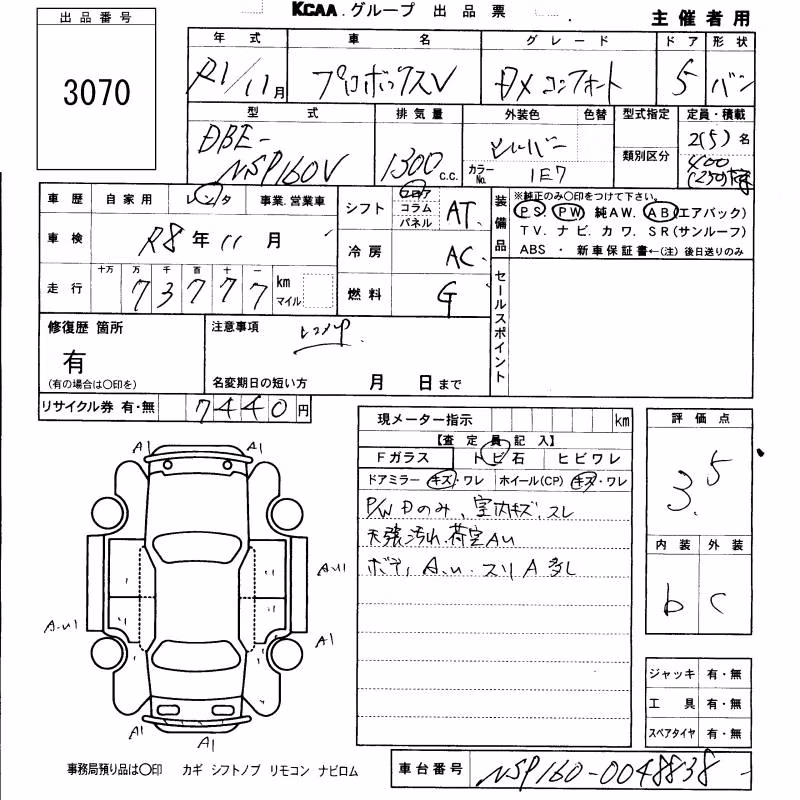 KCAA グループ 出品票
主催者用
出品番号
3070
年式 車名 グレード ドア 形状
R1/11月 プロボックスV DXコンフォート 5 バン
型式 排気量 外装色 色替 型式指定 定員・積載
DBE-NSP160V 1300c.c. シルバー 類別区分 2(5)名
400(250)
カラーNo. 1E7
車歴 自家用 レンタ 事業.営業車
車検 R8年11月
走行 十万 万 千 百 十 一 km マイル
73777
シフト フロア コラム パネル AT
冷房 AC
燃料 G
装備品 ※純正のみ〇印をつけて下さい。
PS. PW 純AW. AB(エアバック)
TV. ナビ. カワ. SR(サンルーフ)
ABS ・ 新車保証書←(注)後日送りのみ
セールスポイント
修復歴 箇所
有
(有の場合は〇印を)
注意事項 レンタUP
名変期日の短い方 月 日まで
リサイクル券 有・無 7440円
現メーター指示 km
【査定員記入】
Fガラス トビ石 ヒビワレ
ドアミラー キズ・ワレ ホイール(CP) キズ・ワレ
P/W Dのみ、室内キズ、スレ
天張汚れ、荷室AU
ボディA.U.スリA多し
評価点
3.5
内装 外装
b C
A1 A1
AU1
A-U1
A1
A1
A1
ジャッキ 有・無
工具 有・無
スペアタイヤ 有・無
事務局預り品は〇印 カギ シフトノブ リモコン ナビロム
車台番号 NSP160-0048838